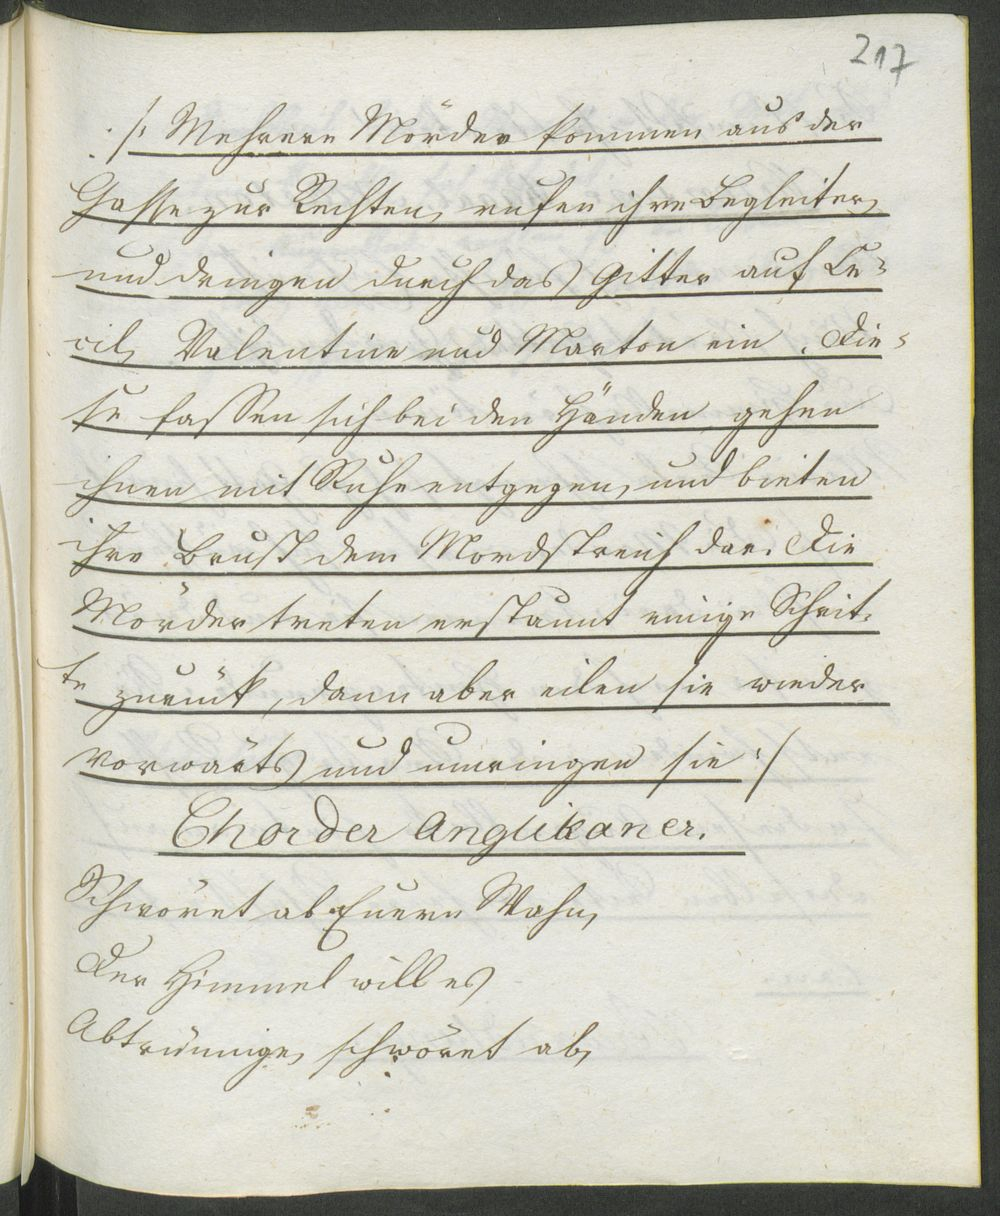 217
./: Mehrere Mörder kommen aus der
Gasse zur Rechten, rufen ihre Begleiter,
und dringen durch das Gitter auf Ce-
cil, Valentine und Marton ein. Die-
se fassen sich bei den Händen, gehen
ihnen mit Ruhe entgegen, und bieten
ihre Brust dem Mordstreich dar. Die
Mörder treten erstaunt einige Schrit-
te zurück, dann aber eilen sie wieder
vorwärts, und umringen sie :/
Chor der Anglikaner.
Schwöret ab Euern Wahn,
Der Himmel will es
Abtrünnige, schwöret ab,